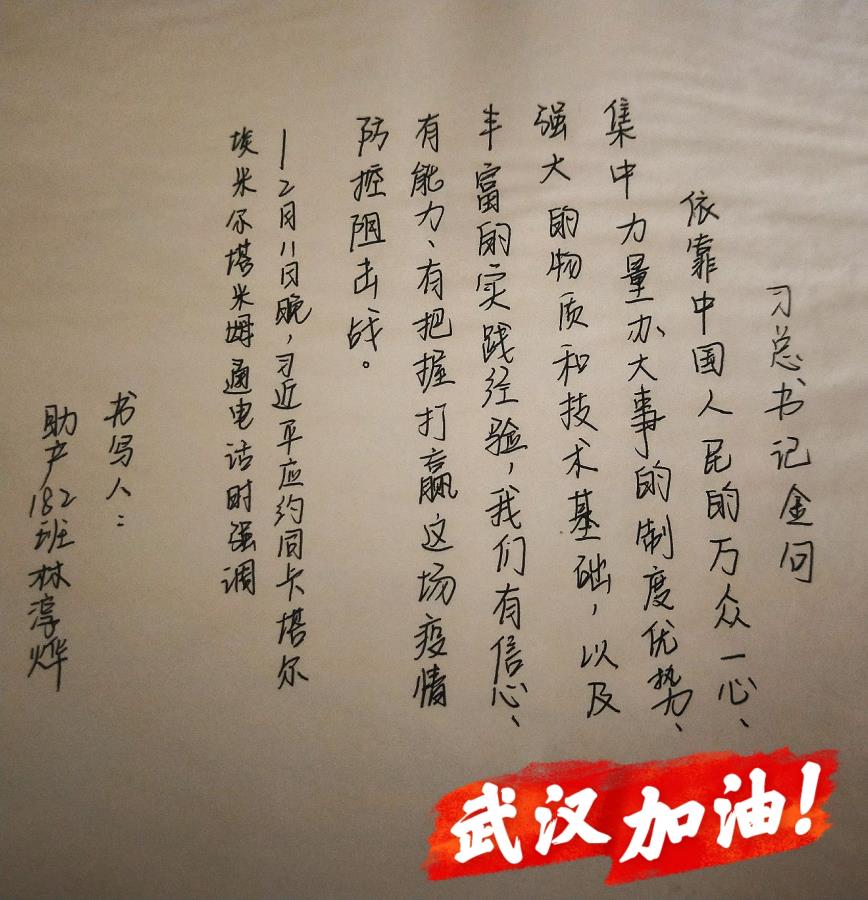 习总书记金句
依靠中国人民的万众一心、
集中力量办大事的制度优势、
强大的物质和技术基础，以及
丰富的实践经验，我们有信心、
有能力、有把握打赢这场疫情
防控阻击战。
—2月11日晚，习近平应约同卡塔尔
埃米尔塔米姆通电话时强调
书写人：
助产182班林淳烨
武汉加油！